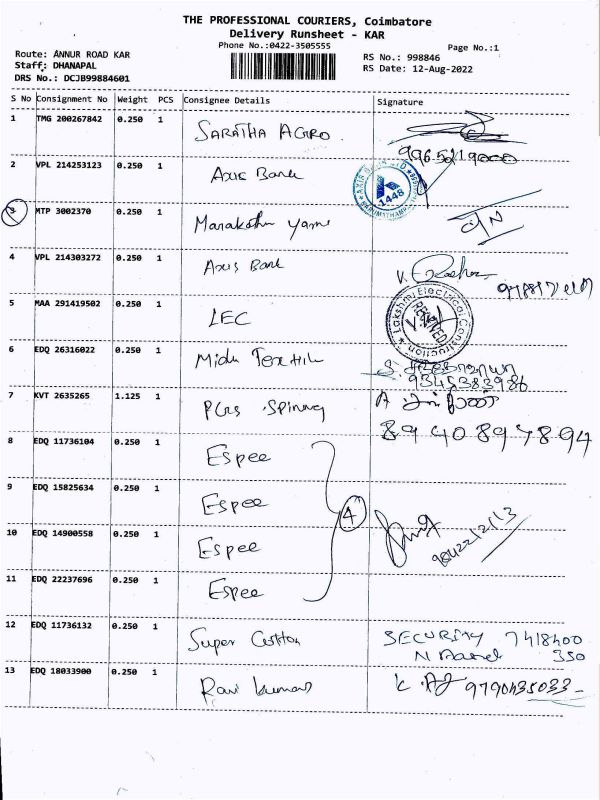 THE PROFESSIONAL COURIERS, Coimbatore
Delivery Runsheet - KAR
Phone No.:0422-3505555
Page No.:1
Route: ANNUR ROAD KAR
Staff: DHANAPAL
DRS No.: DCJB99884601
RS No.: 998846
RS Date: 12-Aug-2022
S No Consignment No Weight PCS Consignee Details Signature
1 TMG 200267842 0.250 1 SARATHA AGRO
9965219000
2 VPL 214253123 0.250 1 Axis Bank 1448
3 MTP 3002370 0.250 1
4 VPL 214303272 0.250 1 Axis Bank V.
5 MAA 291419502 0.250 1 LEC Lakshmi Electrical Construction RECEIVED
6 EDQ 26316022 0.250 1 S.
9345383986
7 KVT 2635265 1.125 1 Spinning A
8940897894
8 EDQ 11736104 0.250 1 Espee
9 EDQ 15825634 0.250 1 Espee
4
10 EDQ 14900558 0.250 1 Espee
11 EDQ 22237696 0.250 1 Espee
12 EDQ 11736132 0.250 1 Super Cotton SECURITY 7418400
350
13 EDQ 18033900 0.250 1 Ravi Kumar 9790435033